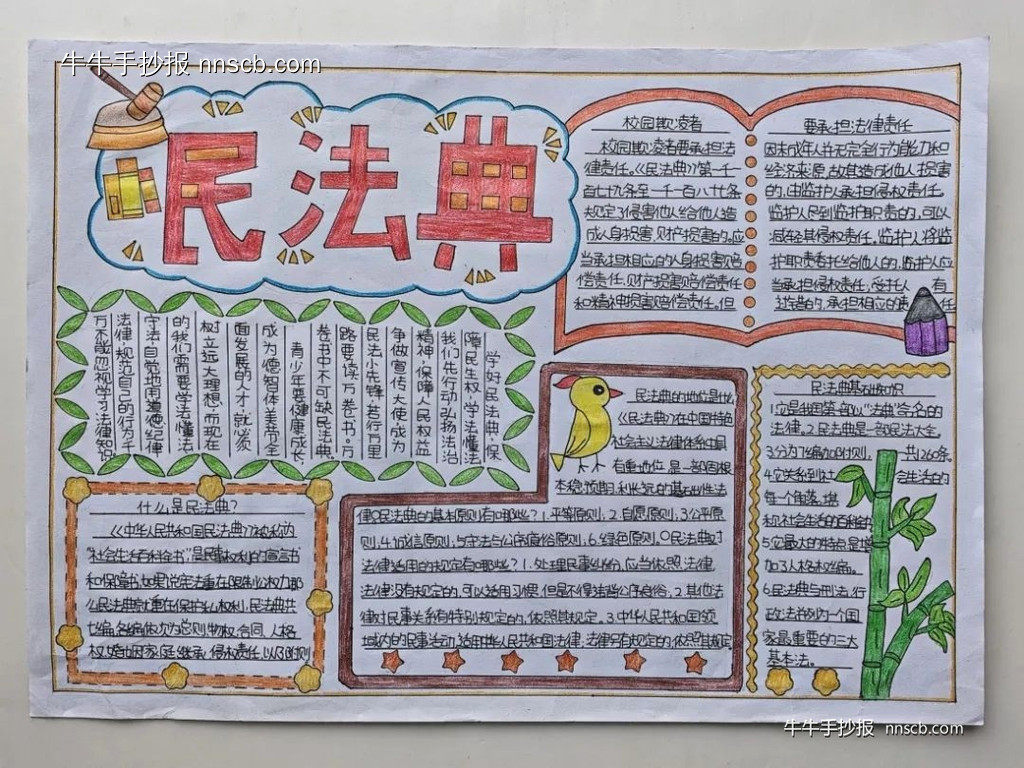 牛牛手抄报 nnscb.com
民法典
校园欺凌者
校园欺凌者要承担法
律责任。《民法典》第一千一
百七九条至一千一百八廿条
规定了侵害他人给他人造
成人身损害,财产损害的,应
当承担相应的人身损害赔
偿责任,财产损害赔偿责任
和精神损害赔偿责任。但
要承担法律责任
因未成年人并无完全行为能力和
经济来源,故其造成他人损害
的,由监护人承担侵权责任。
监护人尽到监护职责的,可以
减轻其侵权责任。监护人将监
护职责委托给他人的,监护人应
当承担侵权责任,受托人 有
过错的,承担相应的责 任
学好民法典,保
障民生权,学法懂法
我们先行动,弘扬法治
精神,保障人民权益
争做宣传大使,成为
民法小先锋,若行万里
路要读万卷书。万
卷书中不可缺民法典
青少年要健康成长,
成为德智体美劳全
面发展的人才,就必须
树立远大理想,而现在
的我们需要学法懂法
守法,自觉地用道德纪律
法律,规范自己的行为,千
万不能忽视学习法律知识
什么是民法典?
《中华人民共和国民法典》被称为
"社会生活百科全书"是民事权利的宣言书
和保障书,如果说宪法重在限制公权力,那
么民法典就重在保护私权利,民法典共
七编,各编依次为总则,物权,合同,人格
权,婚姻家庭,继承,侵权责任,以及附则
民法典的地位是什么
《民法典》在中国特色
社会主义法律体系中具
有重地位,是一部固根
本稳预期,利长远的基础性法
律〇民法典的基本原则有哪些?1.平等原则;2.自愿原则;3公平原
则;4.诚信原则;5守法与公序良俗原则,6.绿色原则。〇民法典对
法律适用的规定有哪些?1.处理民事纠纷,应当依照法律
法律没有规定的,可以适用习惯,但是不得违背公序良俗,2.其他法
律对民事关系有特别规定的,依照其规定。3.中华人民共和国领
域内的民事活动,适用中华人民共和国法律,法律另有规定的,依照其规定
民法典基础知识
1.它是我国第一部以"法典"命名的
法律。2.民法典是一部民法大全
3.分为7编加附则, 共1260条
4.它关系到社 会生活的
每一个角落,堪
称社会生活的百科全书
5.它最大的特点是增
加了人格权编。
6.民法典与刑法,行
政法并列为一个国
家最重要的三大
基本法。
牛牛手抄报 nnscb.com